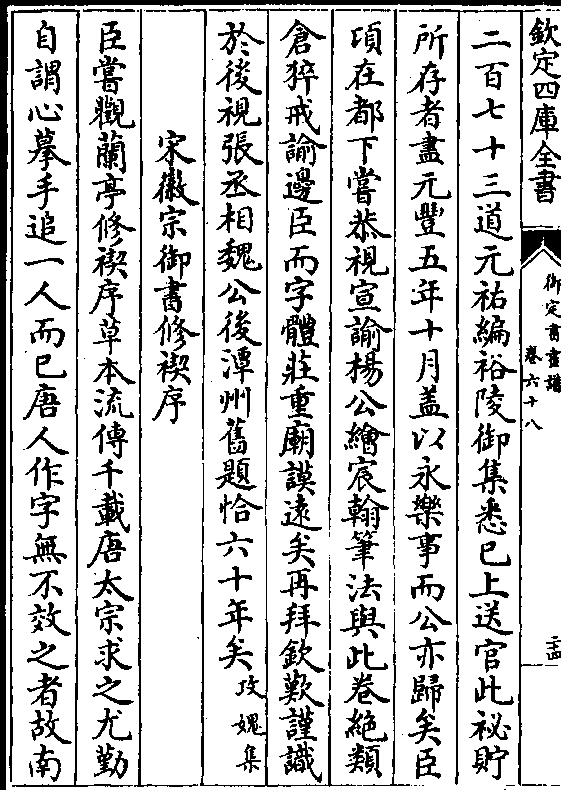 欽定四庫全書
御定書畫譜
卷六十八
二十四
二百七十三道元祐編裕陵御集悉已上送官此祕貯
所存者盡元豐五年十月蓋以永樂事而公亦歸矣臣
項在都下嘗恭視宣諭楊公繪宸翰筆法與此卷絕類
倉猝戒諭邊臣而字體莊重廟謨遠矣再拜欽歎謹識
於後視張丞相魏公後潭州舊題恰六十年矣攻媿集
宋徽宗御書修禊序
臣嘗觀蘭亭修禊序草本流傳千載唐太宗求之尤勤
自謂心摹手追一人而已唐人作字無不效之者故南